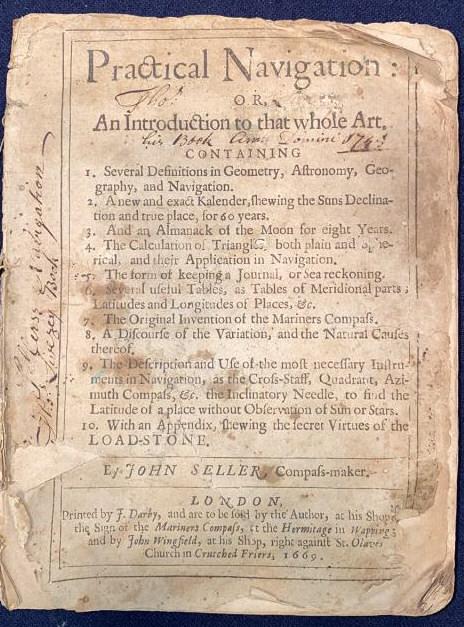 Practical Navigation:
Tho.s
OR,
An Introduction to that whole Art.
his Book Anno Domini
CONTAINING
1. Several Definitions in Geometry, Astronomy, Geo-
graphy, and Navigation.
2. A new and exact Kalender, shewing the Suns Declina-
tion and true place, for 60 years.
3. And an Almanack of the Moon for eight Years.
4. The Calculation of Triangles both plain and
rical, and their Application in Navigation.
5. The form of keeping a Journal, or Sea reckoning.
6. Several useful Tables, as Tables of Meridional parts;
Latitudes and Longitudes of Places, &c.
7. The Original Invention of the Mariners Compass.
8. A Discourse of the Variation, and the Natural Causes
thereof.
9. The Description and Use of the most necessary Instru-
ments in Navigation, as the Cross-Staff, Quadrant, Azi-
muth Compass, &c. the Inclinatory Needle, to find the
Latitude of a place without Observation of Sun or Stars.
10. With an Appendix, shewing the secret Virtues of the
LOAD-STONE.
By JOHN SELLER, Compass-maker.
LONDON,
Printed by J. Darby, and are to be sold by the Author, at his Shop
the Sign of the Mariners Compass, at the Hermitage in Wapping;
and by John Wingfield, at his Shop, right against St. Olaves
Church in Crutched Friers, 1669.
Navigation
Book